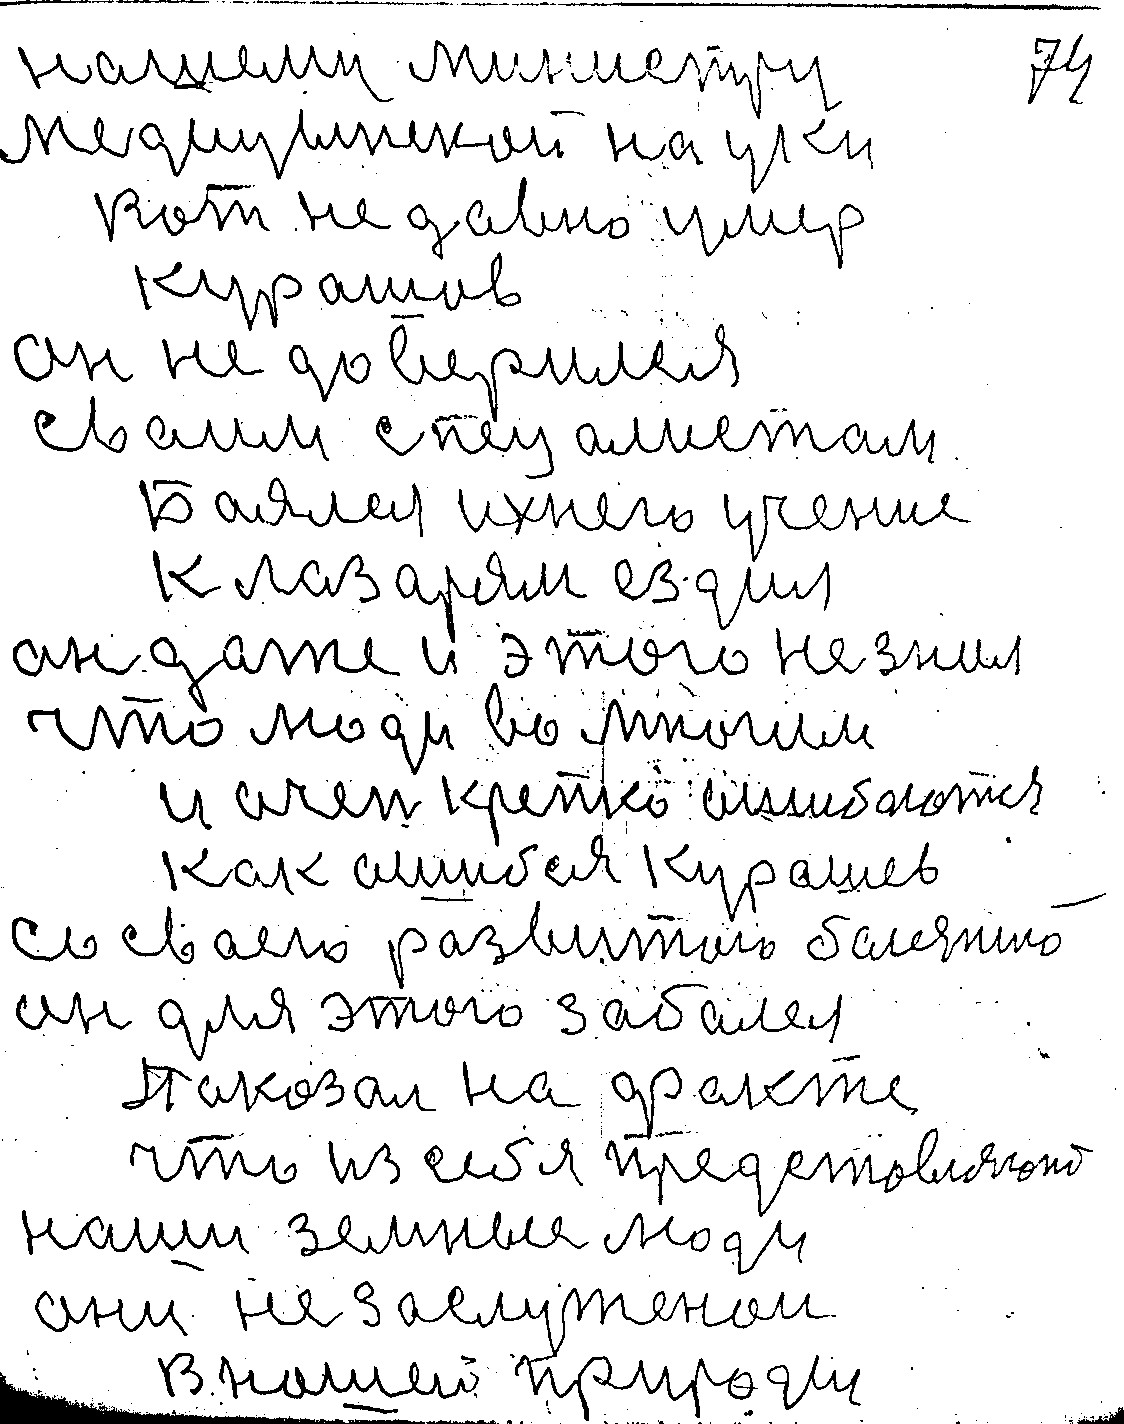 нашему министру 74
медицинской науки
вот не давно умер
Курашов
он не доверился
сваим специалистам
Баялся ихнего учение
К лазарям ездил
он даже и этого не знил
что люди во многим
и очен крепко ошибаются
Как ошибся Курашев
со сваего развитого
он для этого забалел
Паказал на факте
что из себя предстовляют
наши земные люди
они не заслуженои
в нашей природи